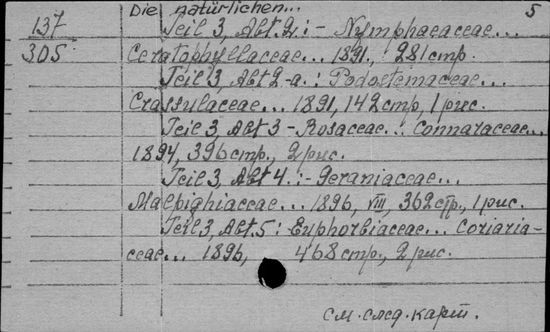 Die natürlichen... 5
137
305
Teil 3, Abt. 2: - Nymphaeaceae...
Ceratophyllaceae... 1891, 281 стр.
Teil 3, Abt 2-a.: Podostemaceae...
Crassulaceae... 1891, 142 стр., 1 рис.
Teil 3, Abt 3 - Rosaceae... Connaraceae...
1894, 396 стр., 2 рис.
Teil 3, Abt 4.: - Geraniaceae...
Malpighiaceae... 1896, VIII, 362 стр., 1 рис.
Teil 3, Abt. 5: Euphorbiaceae... Coriaria-
ceae... 1896, 468 стр., 2 рис.
см. след. карт.